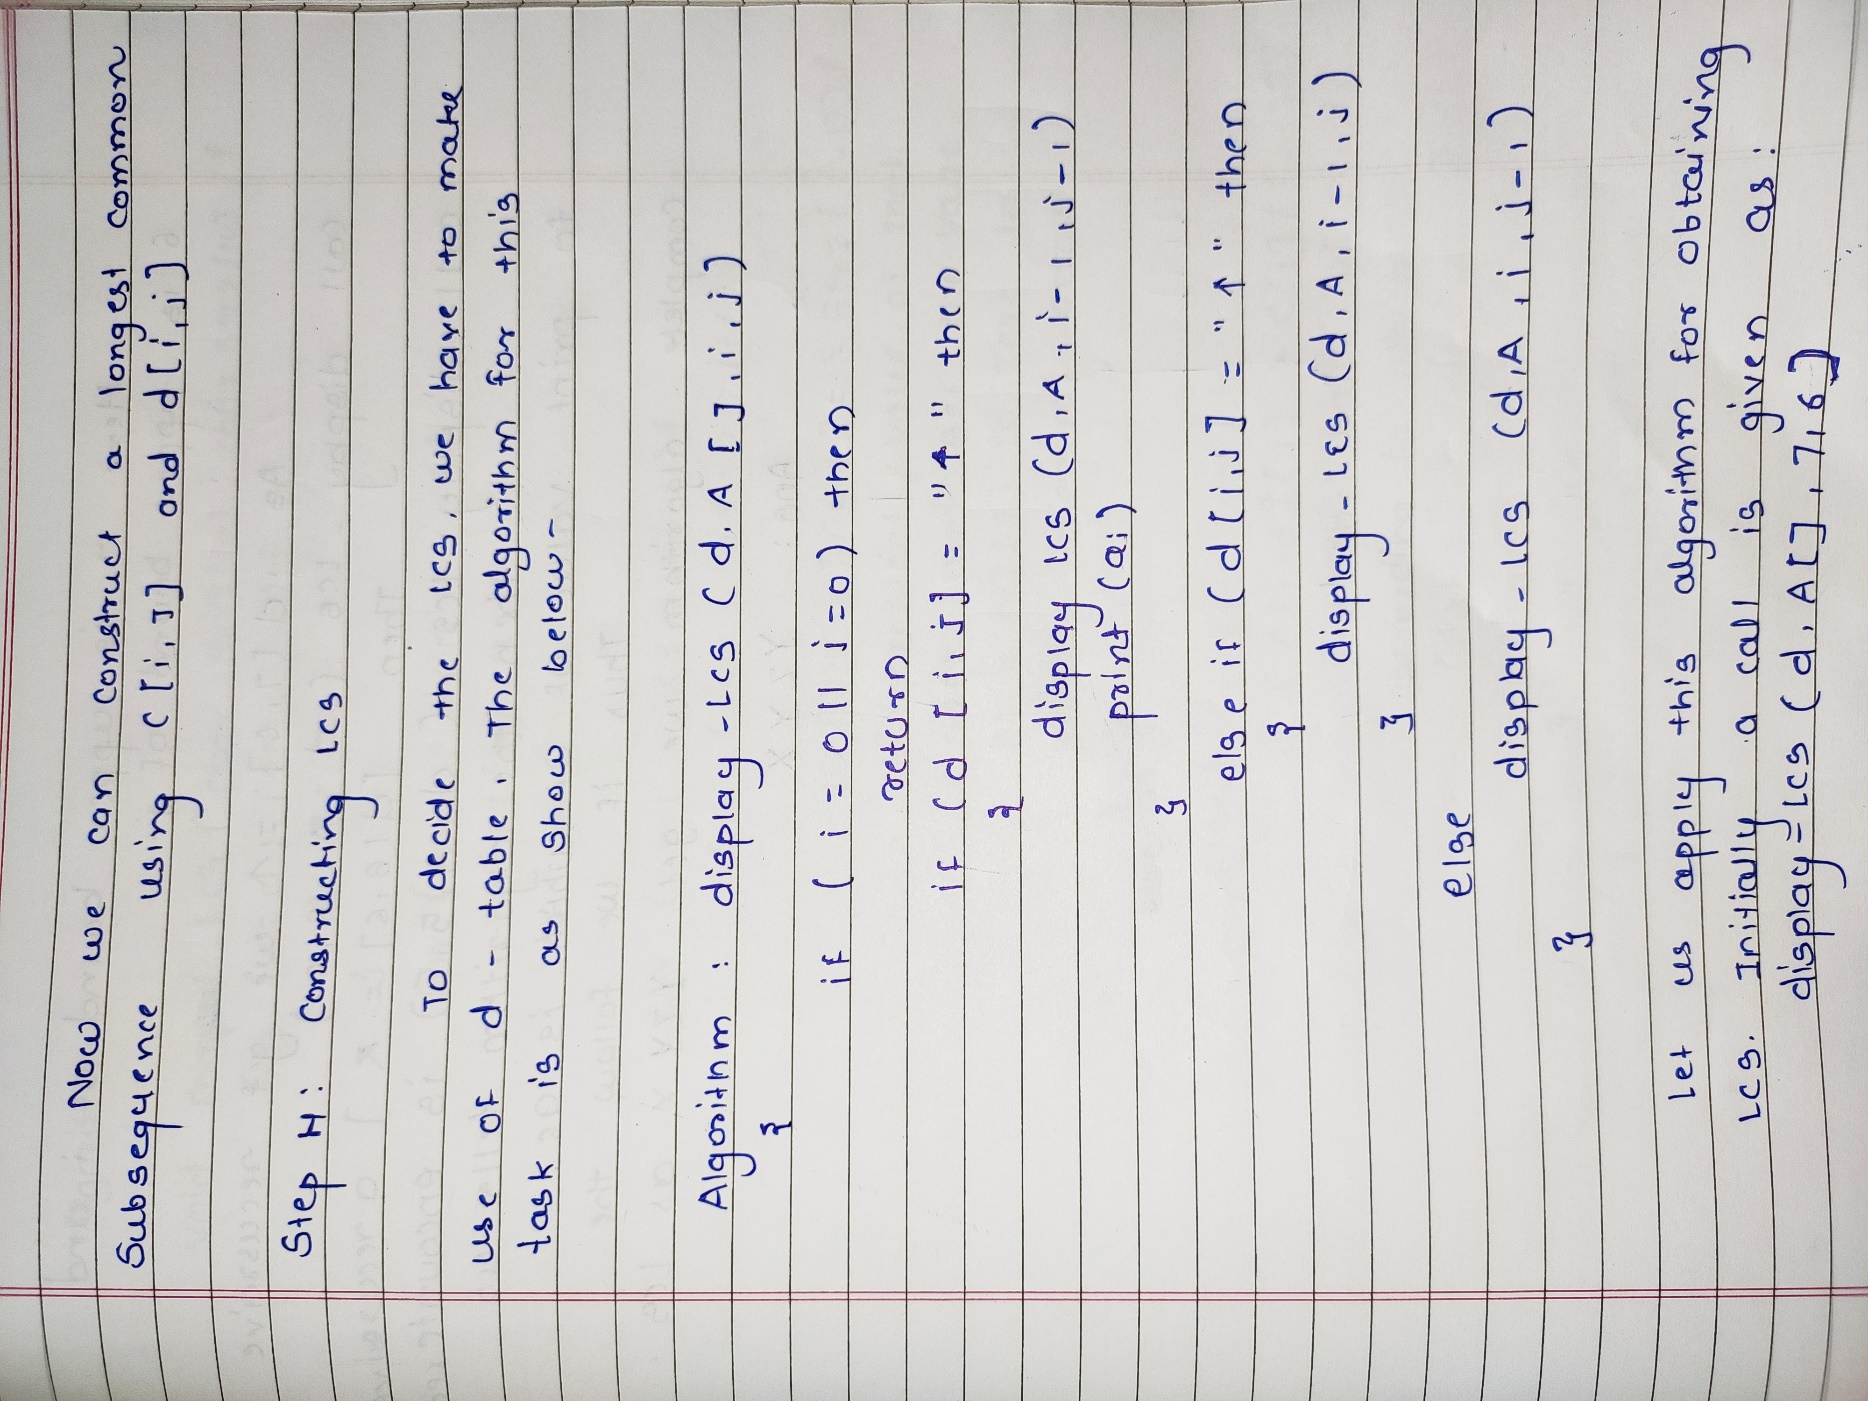 Now we can construct a longest common
Subsequence using C[i,J] and d[i,j]
Step H: Constructing LCS
To decide the LCS, we have to make
use of d-table. The algorithm for this
task is as show below-
Algorithm : display-LCS (d.A [],i,j)
{
if (i=0 || j=0) then
return
if (d [i,j] = "↑" then
{
display LCS (d,A,i-1,j-1)
print (ai)
}
else if (d[i,j] = "↑" then
{
display-LCS (d,A,i-1,j)
}
else
display-LCS (d,A,i,j-1)
}
Let us apply this algorithm for obtaining
LCS. Initially a call is given as:
display-LCS (d,A[],7,6)